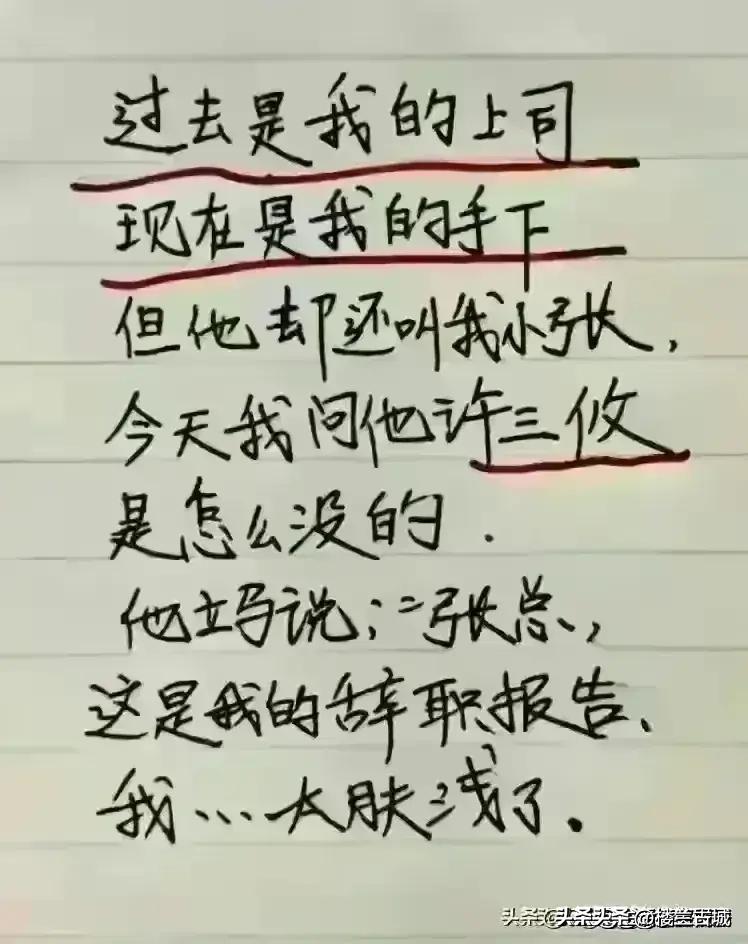 过去是我的上司
现在是我的手下
但他却还叫我小张,
今天我问他许三攸
是怎么没的.
他立马说:"张总,
这是我的辞职报告、
我...太肤浅了.